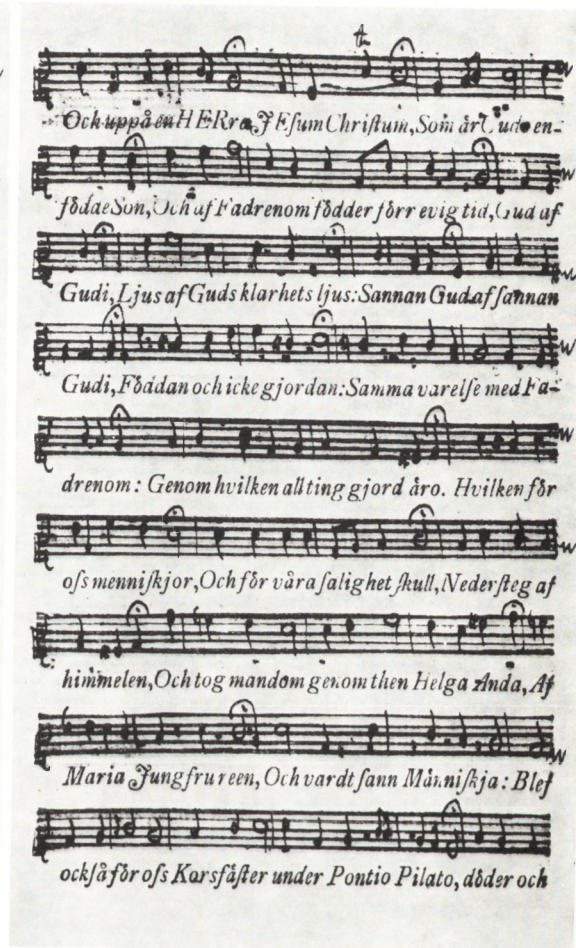 Och uppå en HERra JEſum Chriſtum, Som är Gudz en-
födde Son, Och af Fadrenom födder förr evig tid, Gud af
Gudi, Ljus af Guds klarhets ljus: Sannan Gud af ſannan
Gudi, Föddan och icke gjordan: Samma varelſe med Fa-
drenom: Genom hvilken all ting gjord äro. Hvilken för
oſs menniſkjor, Och för våra ſalighet ſkull, Neder ſteg af
himmelen, Och tog mandom genom then Helga Anda, Af
Maria Jungfru reen, Och vardt ſann Månniſkja: Blef
ockſå för oſs Korsfäſter under Pontio Pilato, döder och